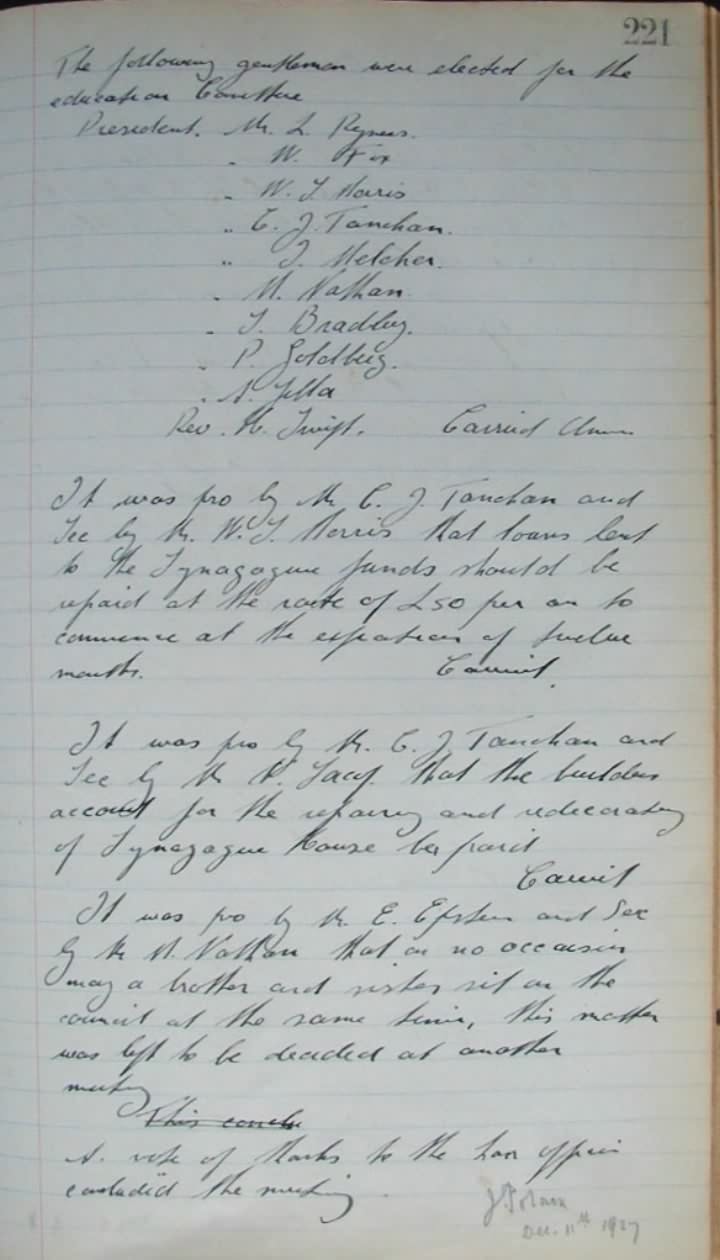 221
The following gentleman were elected for the
education Committee
President. Mr. L.
" W. Fox
" W. S. Morris
" C. J. Tanchan.
" J. Melcher.
" M. Nathan
" S. Bradley.
" P. Goldberg.
" A.
Rev. H. Swift. Carried
It was pro by Mr C. J. Tanchan and
Sec by Mr. W. S. Morris that loans lent
to the Synagogue funds should be
repaid at the rate of £50 per an to
commence at the expiration of twelve
months. Carried.
It was pro by Mr. C. J. Tanchan and
Sec by Mr that the builders
account for the repairing and redecorating
of Synagogue House be paid
Carried
It was pro by Mr E. Epstein and Sec
by Mr M. Nathan that on no occasion
may a brother and sister sit on the
council at the same time, this matter
was left to be decided at another
meeting
This conclu
A. vote of thanks to the hon officers
concluded the meeting
Dec. 11th 1927